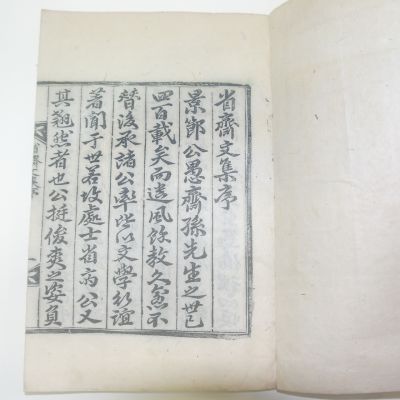 省齋文集序
景節公愚齋孫先生之世已
四百載矣而遺風餘教久愈不
替後承諸公率皆以文學行誼
著聞于世若故處士省齋公又
其翹然者也公挺俊爽之姿負